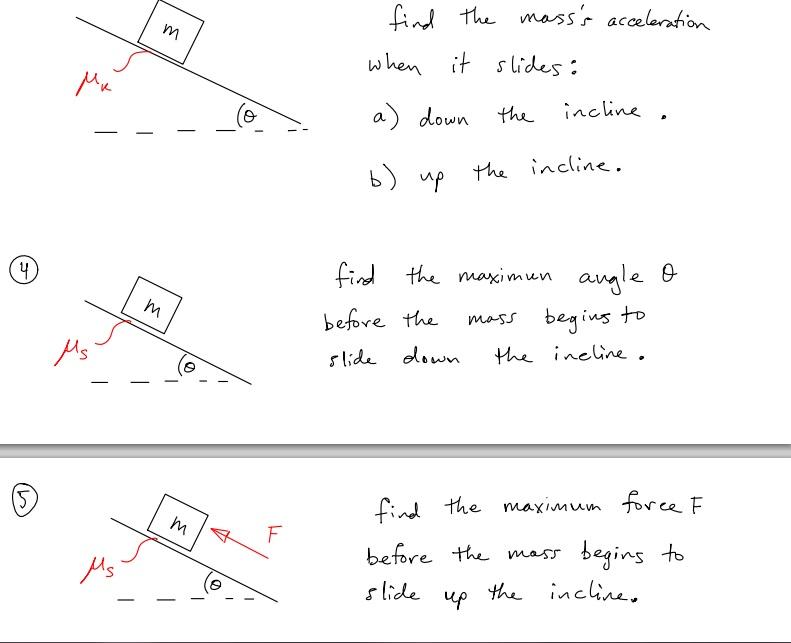 m
μk
θ
find the mass's acceleration
when it slides:
a) down the incline.
b) up the incline.
4
m
μs
θ
find the maximun angle θ
before the mass begins to
slide down the incline.
5
m
F
μs
θ
find the maximum force F
before the mass begins to
slide up the incline.